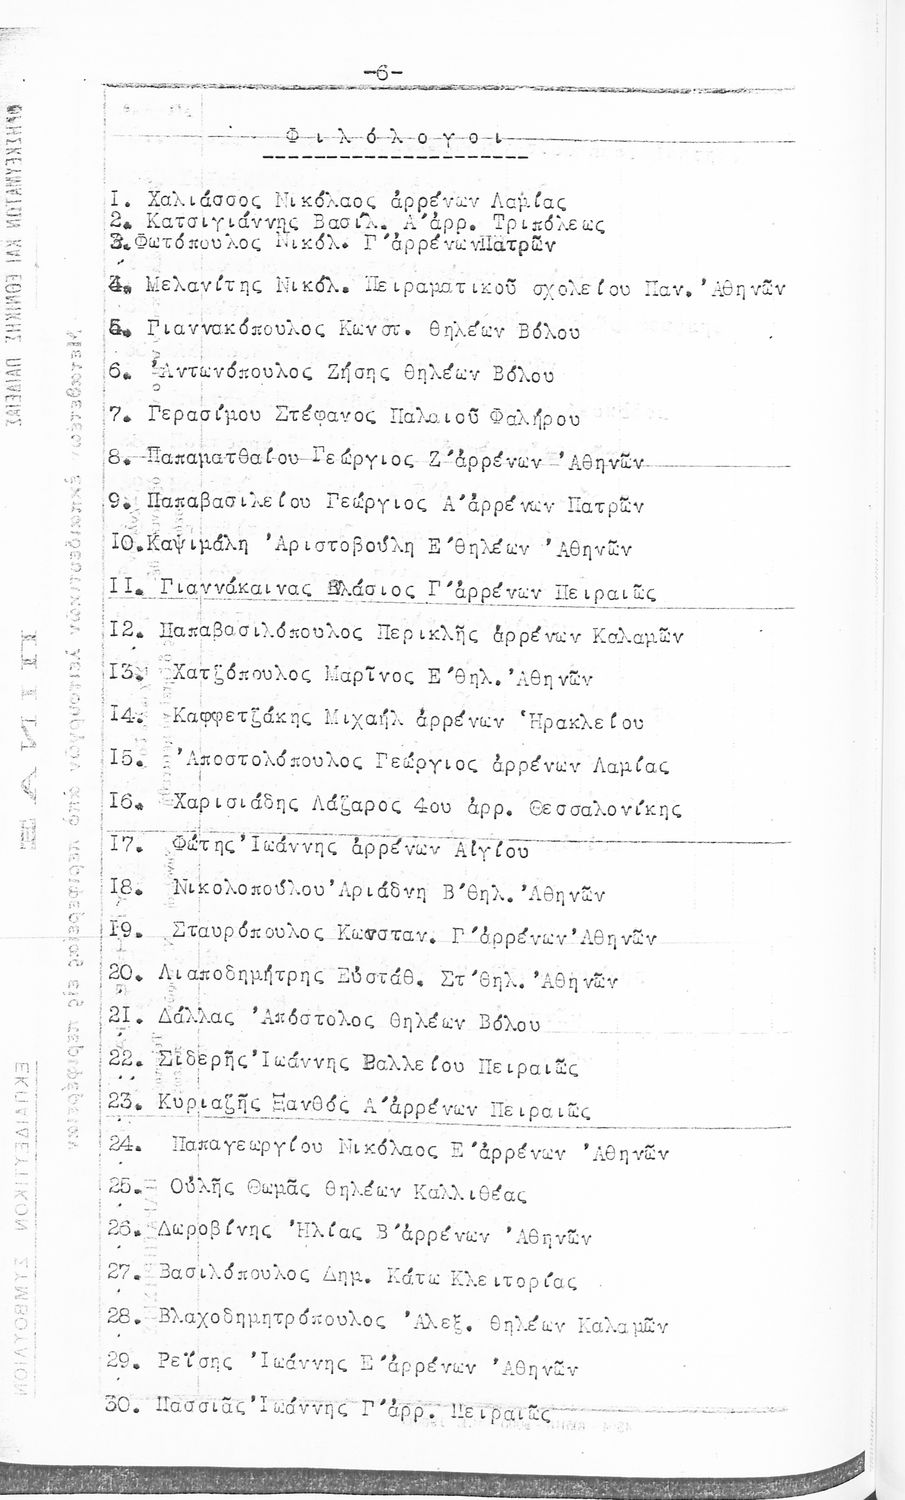 -6-
Φ ι λ ό λ ο γ ο ι
1. Χαλιάσσος Νικόλαος ἀρρένων Λαμίας
2. Κατσιγιάννης Βασίλ. Α΄ἀρρ. Τριπόλεως
3.Φωτόπουλος Νικόλ. Γ΄ἀρρένωνΠατρῶν
4. Μελανίτης Νικόλ. Πειραματικοῦ σχολείου Παν.'Αθηνῶν
5. Γιαννακόπουλος Κωνστ. θηλέων Βόλου
6. 'Αντωνόπουλος Ζήσης θηλέων Βόλου
7. Γερασίμου Στέφανος Παλαιοῦ Φαλήρου
8. Παπαματθαίου Γεώργιος Ζ΄ἀρρένων 'Αθηνῶν
9. Παπαβασιλείου Γεώργιος Α΄ἀρρένων Πατρῶν
10.Καψιμάλη 'Αριστοβούλη Ε΄θηλέων 'Αθηνῶν
11. Γιαννάκαινας Βλάσιος Γ΄ἀρρένων Πειραιῶς
12. Παπαβασιλόπουλος Περικλῆς ἀρρένων Καλαμῶν
13. Χατζόπουλος Μαρῖνος Ε΄θηλ.'Αθηνῶν
14. Καφφετζάκης Μιχαήλ ἀρρένων 'Ηρακλείου
15. 'Αποστολόπουλος Γεώργιος ἀρρένων Λαμίας
16. Χαρισιάδης Λάζαρος 4ου ἀρρ. Θεσσαλονίκης
17. Φώτης'Ιωάννης ἀρρένων Αἰγίου
18. Νικολοπούλου'Αριάδνη Β΄θηλ.'Αθηνῶν
19. Σταυρόπουλος Κωνσταν. Γ΄ἀρρένων'Αθηνῶν
20. Λιαποδημήτρης Εὐστάθ. Στ΄θηλ.'Αθηνῶν
21. Δάλλας 'Απόστολος θηλέων Βόλου
22. Σιδερῆς'Ιωάννης Ραλλείου Πειραιῶς
23. Κυριαζῆς Ξανθός Α΄ἀρρένων Πειραιῶς
24. Παπαγεωργίου Νικόλαος Ε΄ἀρρένων 'Αθηνῶν
25. Οὐλῆς Θωμᾶς θηλέων Καλλιθέας
26. Δωροβίνης 'Ηλίας Β΄ἀρρένων 'Αθηνῶν
27. Βασιλόπουλος Δημ. Κάτω Κλειτορίας
28. Βλαχοδημητρόπουλος 'Αλεξ. θηλέων Καλαμῶν
29. Ρεΐσης 'Ιωάννης Ε΄ἀρρένων 'Αθηνῶν
30. Πασσιᾶς'Ιωάννης Γ΄ἀρρ. Πειραιῶς